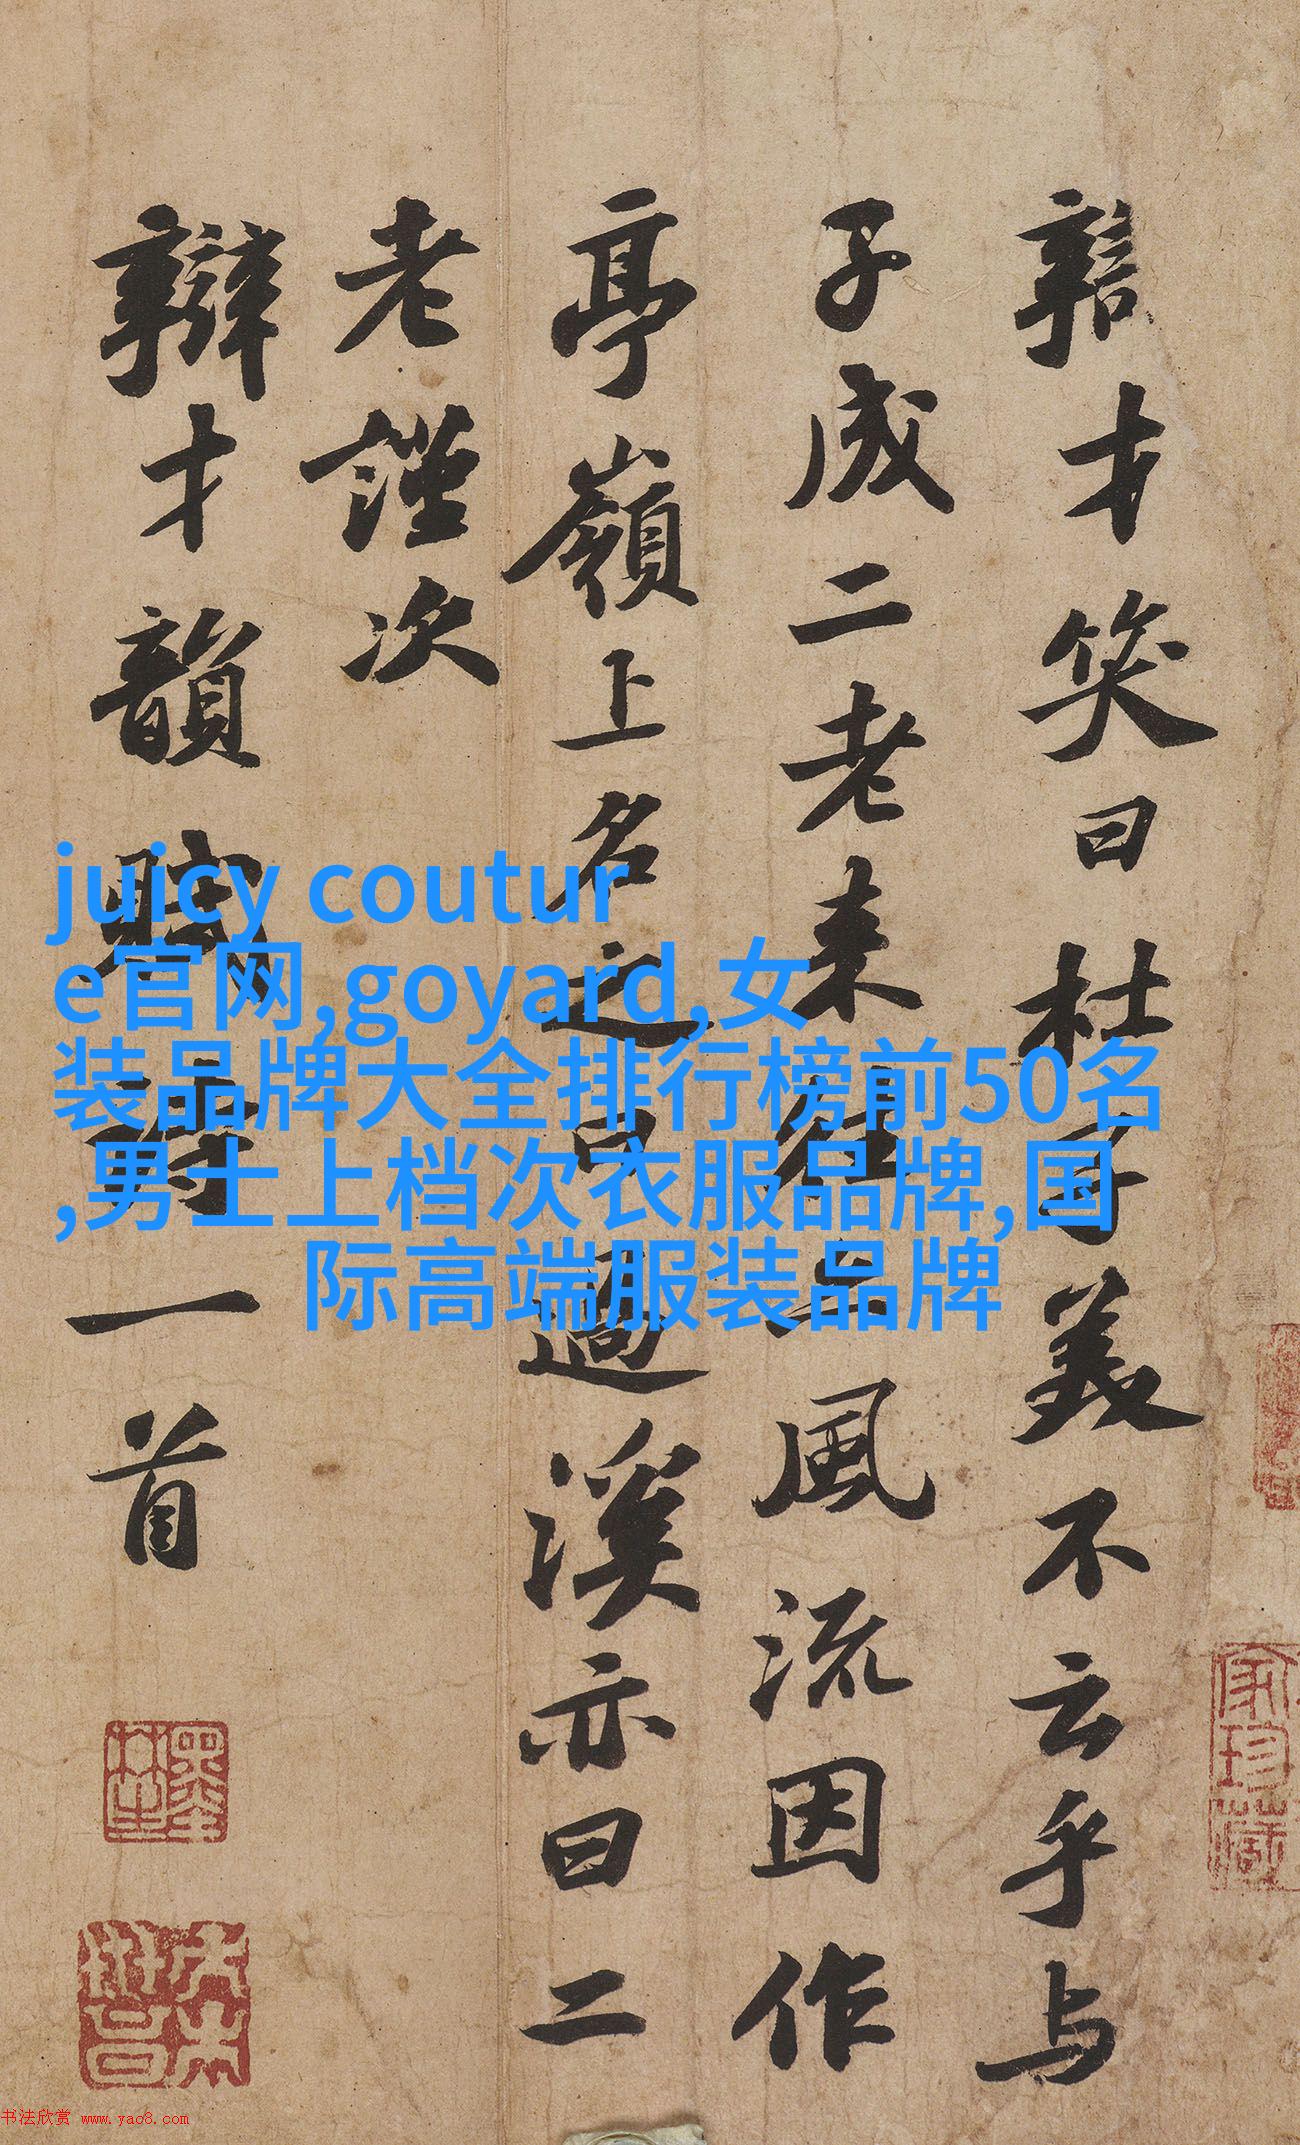 辯才笑曰杜子美不云乎与
子成二老来往亦風流因作
亭嶺上名之曰過溪亦曰二
老謹次
辯才韻賦詩一首
juicy coutur
e官网,goyard,女
装品牌大全排行榜前50名
,男士上档次衣服品牌,国
际高端服装品牌
家珍藏
书法欣赏 www.yac8.com